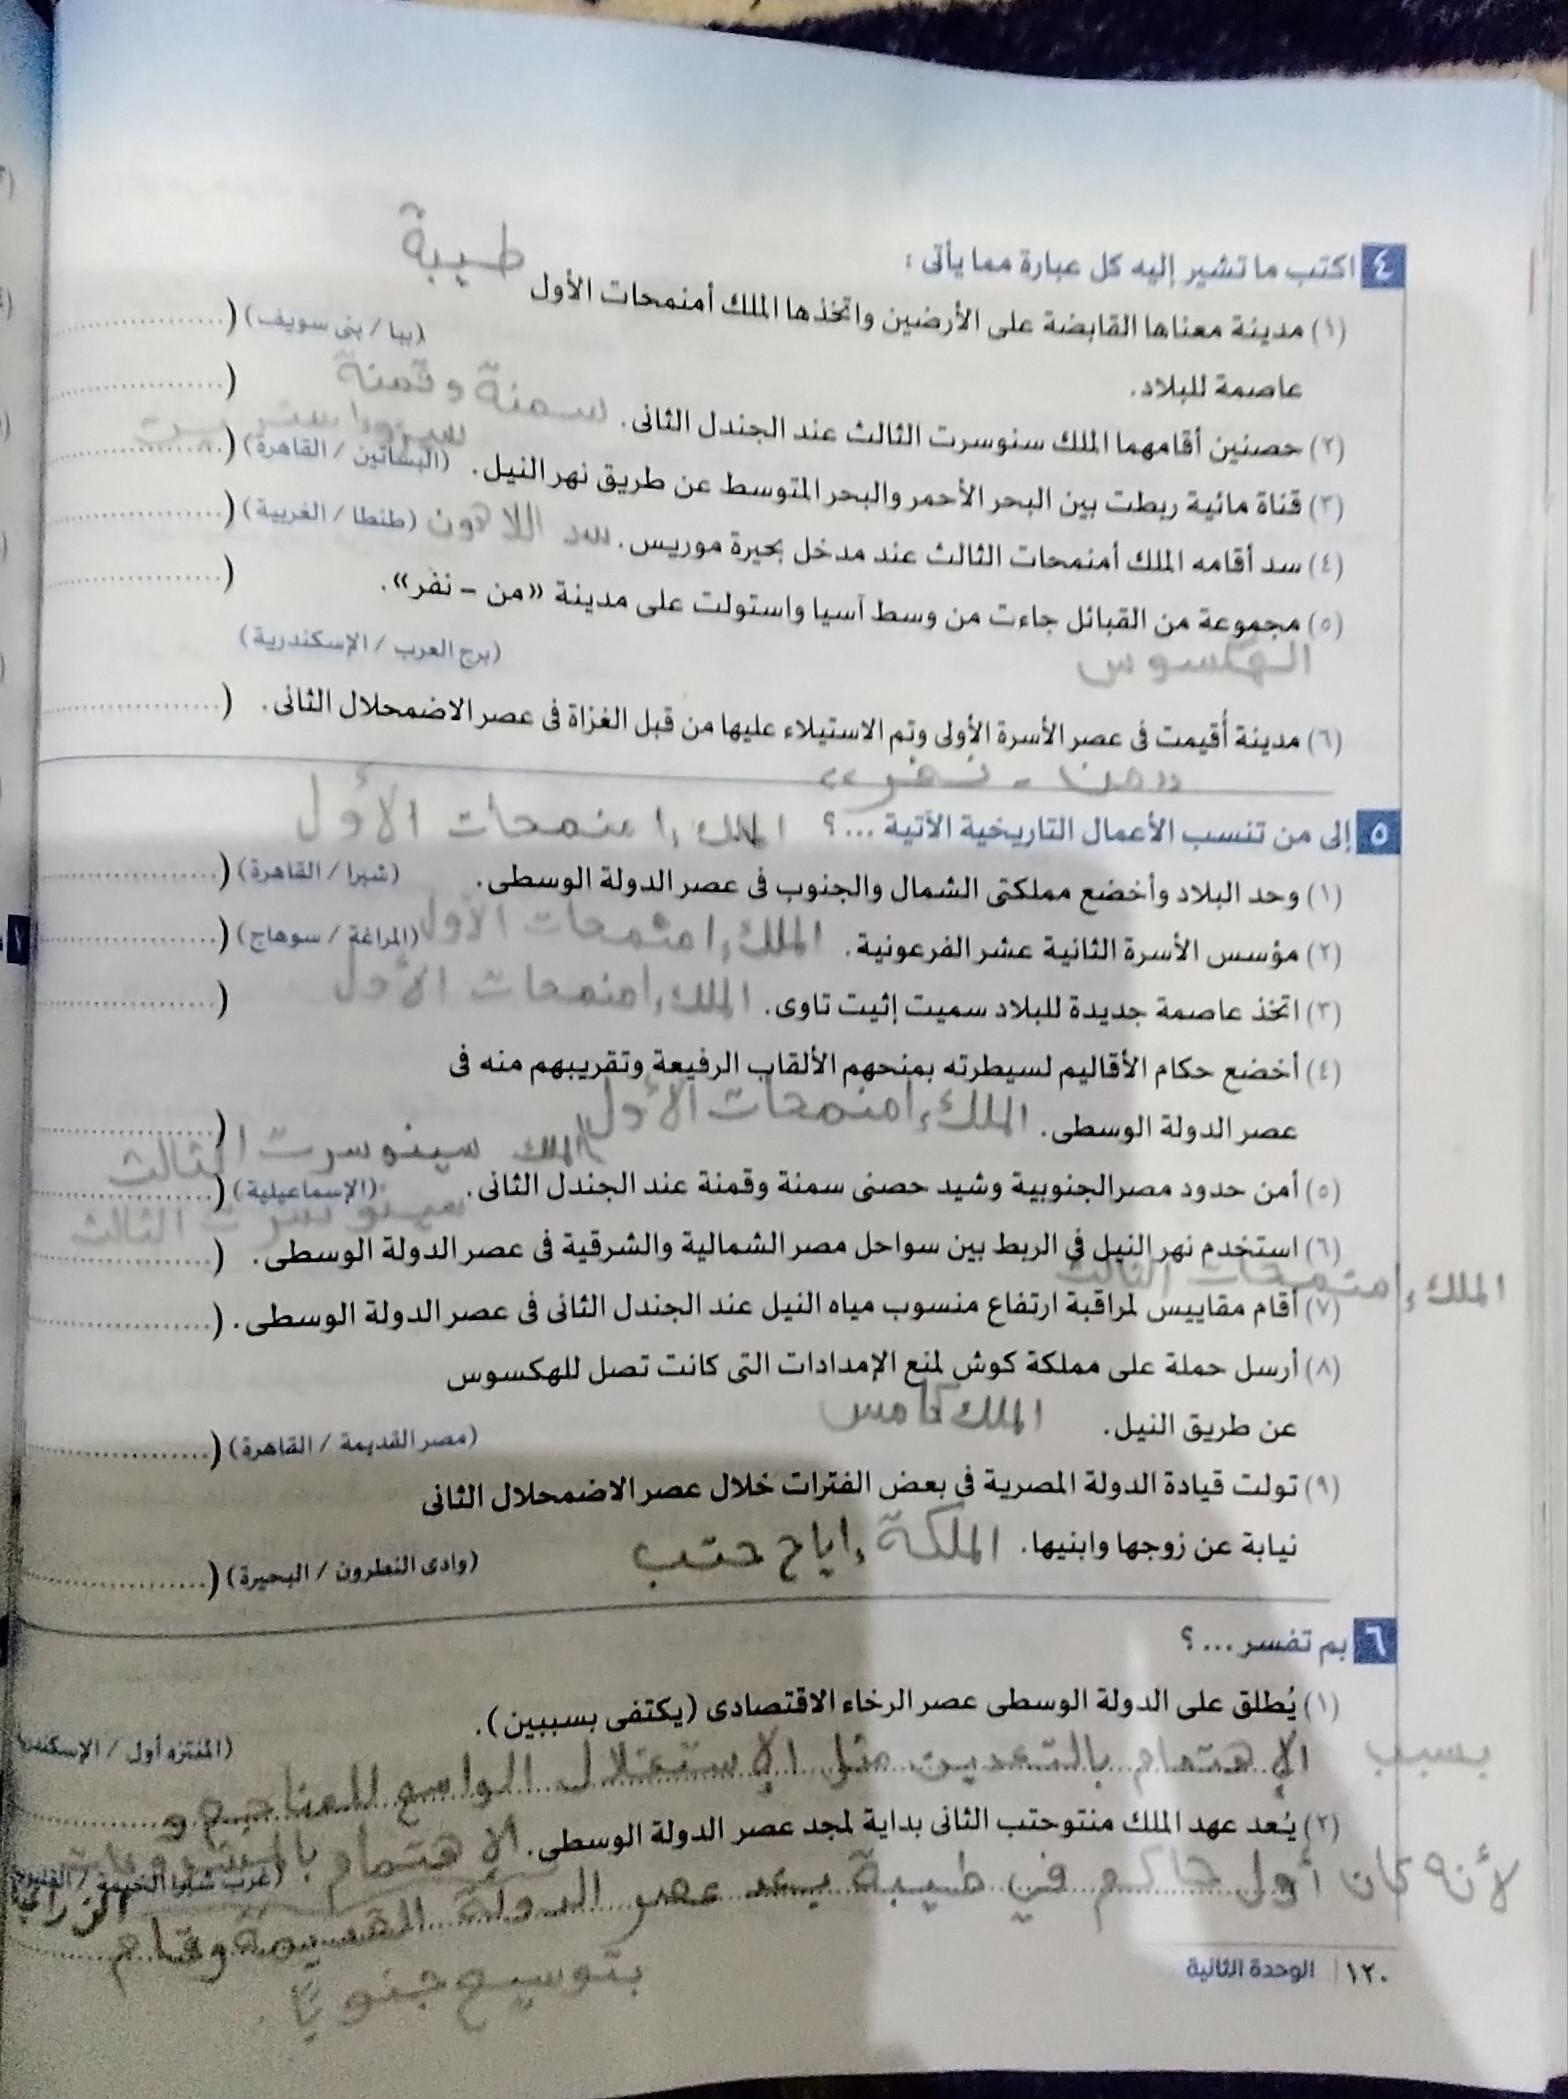 طيبة
٤ اكتب ما تشير إليه كل عبارة مما يأتى :
(١) مدينة معناها القابضة على الأرضين واتخذها الملك أمنمحات الأول
عاصمة للبلاد. (ببا / بنى سويف) (....................
سمنة وقمنة
(٢) حصنين أقامهما الملك سنوسرت الثالث عند الجندل الثانى. (....................
(٣) قناة مائية ربطت بين البحر الأحمر والبحر المتوسط عن طريق نهر النيل. (البساتين / القاهرة) (....................
(٤) سد أقامه الملك أمنمحات الثالث عند مدخل بحيرة موريس. سد اللاهون (طنطا / الغربية) (....................
(٥) مجموعة من القبائل جاءت من وسط آسيا واستولت على مدينة «من - نفر». (....................
الهكسوس (برج العرب / الإسكندرية)
(٦) مدينة أُقيمت فى عصر الأسرة الأولى وتم الاستيلاء عليها من قبل الغزاة فى عصر الاضمحلال الثانى. (....................
«من - نفر»
٥ إلى من تنسب الأعمال التاريخية الآتية ...؟ الملك إمنمحات الأول
(١) وحد البلاد وأخضع مملكتى الشمال والجنوب فى عصر الدولة الوسطى. (شبرا / القاهرة) (....................
(٢) مؤسس الأسرة الثانية عشر الفرعونية. الملك إمنمحات الأول (المراغة / سوهاج) (....................
(٣) اتخذ عاصمة جديدة للبلاد سميت إثيت تاوى. الملك إمنمحات الأول (....................
(٤) أخضع حكام الأقاليم لسيطرته بمنحهم الألقاب الرفيعة وتقريبهم منه فى
عصر الدولة الوسطى. الملك إمنمحات الأول (....................
الملك سينوسرت الثالث
(٥) أمن حدود مصر الجنوبية وشيد حصنى سمنة وقمنة عند الجندل الثانى. (الإسماعيلية) (....................
سينوسرت الثالث
(٦) استخدم نهر النيل فى الربط بين سواحل مصر الشمالية والشرقية فى عصر الدولة الوسطى. (....................
الملك إمنمحات الثالث
(٧) أقام مقاييس لمراقبة ارتفاع منسوب مياه النيل عند الجندل الثانى فى عصر الدولة الوسطى. (....................
(٨) أرسل حملة على مملكة كوش لمنع الإمدادات التى كانت تصل للهكسوس
عن طريق النيل. الملك كامس (مصر القديمة / القاهرة) (....................
(٩) تولت قيادة الدولة المصرية فى بعض الفترات خلال عصر الاضمحلال الثانى
نيابة عن زوجها وابنيها. الملكة إياح حتب (وادى النطرون / البحيرة) (....................
٦ بم تفسر ...؟
(١) يُطلق على الدولة الوسطى عصر الرخاء الاقتصادى (يكتفى بسببين). (المنتزه أول /
بسبب الإهتمام بالتعدين مثل الإستغلال الواسع للمناجم و
(٢) يُعد عهد الملك منتوحتب الثانى بداية لمجد عصر الدولة الوسطى. الإهتمام (غرب شبرا الخيمة /
لأنه كان أول حاكم في طيبة بعد عصر الدولة القديمة وقام
بتوسيع جنوبًا.
١٢٠ | الوحدة الثانية